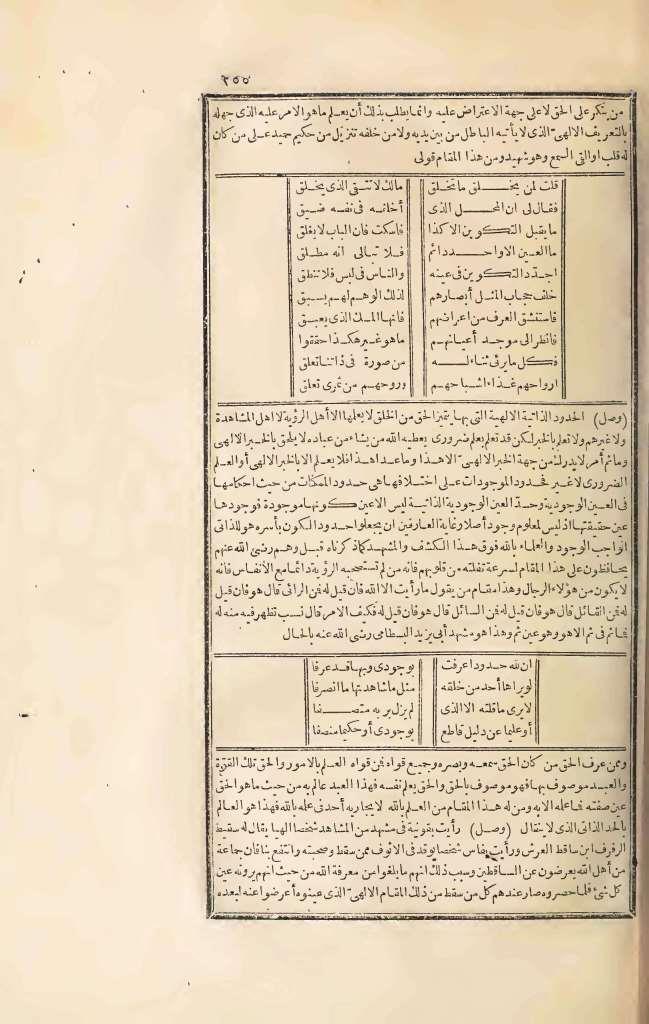 ٢٥٥
من ينكر على الحق لا على جهة الاعتراض عليه وانما يطلب بذلك أن يعلم ما هو الامر عليه الذى جهله
بالتعريف الالهىّ الذى لا يأتيه الباطل من بين يديه ولا من خلفه تنزيل من حكيم حميد على من كان
له قلب او القى السمع وهو شهيد ومن هذا المقام قولى
قلت لمن يخلق ما تخلق مالك لا تتقى الذى يخلق
فقال لى ان المحل الذى أخافه فى نفسه ضيق
ما يقبل التكوين الا كذا فاسكت فان الباب لا يغلق
ما العين الا واحد دائم فلا تبالى انه مطلق
اجدّد التكوين فى عينه والناس فى لبس فلا تنطق
خلف حجاب المثل أبصارهم لذلك الوهم لهم يسبق
فاستنشق العرف من اعرافهم فانها المسك الذى يعبق
فانظر الى موجد أعيانهم ما هو غير هكذا حققوا
فكل ما يرى ثناء له من صورة فى ذاتنا تعلق
ارواحهم غذاء اشباحهم وروحهم من تعلق
(وصل) الحدود الذاتية الالهية التى بها يتميز الحق من الخلق لا يعلمها الا أهل الرؤية لا اهل المشاهدة
ولا غيرهم ولا تعلم بالخبر لكن قد تعلم بعلم ضرورى يعطيه الله من يشاء من عباده لا يلحق بالخبر الالهى
وما ثم أمر لا يدرك من جهة الخبر الالهىّ الا هذا وما عدا هذا فلا يعلم الا بالخبر الالهى أو العلم
الضرورى لا غير فحدود الموجودات على اختلافها هى حدود الممكنات من حيث احكامها
فى العين الوجودية وحدّ العين الوجودية الذاتية ليس الا عين كونها موجودة فوجودها
عين حقيقتها اذ ليس لمعلوم وجود أصلا وغاية العارفين ان يجعلوا حدود الكون بأسره هو للذاتى
الواجب الوجود والعلماء بالله فوق هذا الكشف والمشهد كما ذكرناه قبل وهم رضى الله عنهم
يحافظون على هذا المقام لسرعة تفلته من قلوبهم فانه من لم تستصحبه الرؤية دائما مع الأنفاس فانه
لا يكون من هؤلاء الرجال وهذا مقام من يقول ما رأيت الا الله فان قيل له فمن الرائى قال هو فان قيل
له فمن القائل قال هو فان قيل له فمن السائل قال هو فان قيل له فكيف الامر قال نسب تظهر فيه منه له
فما ثم فى ثم الا هو وهو عين ثم وهذا هو مشهد أبى يزيد البسطامى رضى الله عنه بالحال
ان لله حدودا عرفت بوجودى وبها قد عرفا
لو يراها أحد من خلقه مثل ما شاهدتها ما انصرفا
لا يرى ما قلته الا الذى لم يزل بربه متصفا
أو عليما عن دليل قاطع بوجودى أو حكيما منصفا
ومن عرف الحق من كان الحق سمعه وبصره وجميع قواه فمن قواه العلم بالامور والحق تلك القوّة
والعبد موصوف بها فهو موصوف بالحق والحق يعلم نفسه فهذا العبد عالم به من حيث ما هو الحق
عين صفته فما علمه الا به ومن له هذا المقام من العلم بالله لا يجاريه أحد فى علمه بالله فهذا هو العالم
بالحد الذاتى الذى لا ينقال (وصل) رأيت بقونية فى مشهد من المشاهد شخصا الهيا يقال له سقيط
الرفرف ابن ساقط العرش ورأيت بفاس شخصا يوقد فى الاتون ممن سقط وصحبته وانتفع بنا فان جماعة
من أهل الله يعرضون عن الساقطين وسبب ذلك انهم ما بلغوا من معرفة الله من حيث انهم يرونه عين
كل شئ فلما حصروه صار عندهم كل من سقط من ذلك المقام الالهىّ الذى عينوه أعرضوا عنه لبعده